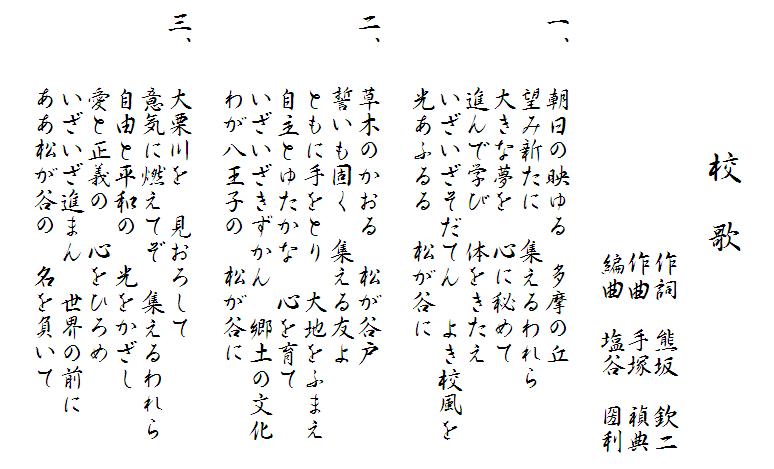 校歌
作詞 熊坂 欽二
作曲 手塚 禎典
編曲 塩谷 圀利
一、
朝日の映ゆる 多摩の丘
望み新たに 集えるわれら
大きな夢を 心に秘めて
進んで学び 体をきたえ
いざいざそだてん よき校風を
光あふるる 松が谷に
二、
草木のかおる 松が谷戸
誓いも固く 集える友よ
ともに手をとり 大地をふまえ
自主とゆたかな 心を育て
いざいざきずかん 郷土の文化
わが八王子の 松が谷に
三、
大栗川を 見おろして
意気に燃えてぞ 集えるわれら
自由と平和の 光をかざし
愛と正義の 心をひろめ
いざいざ進まん 世界の前に
ああ松が谷の 名を負いて